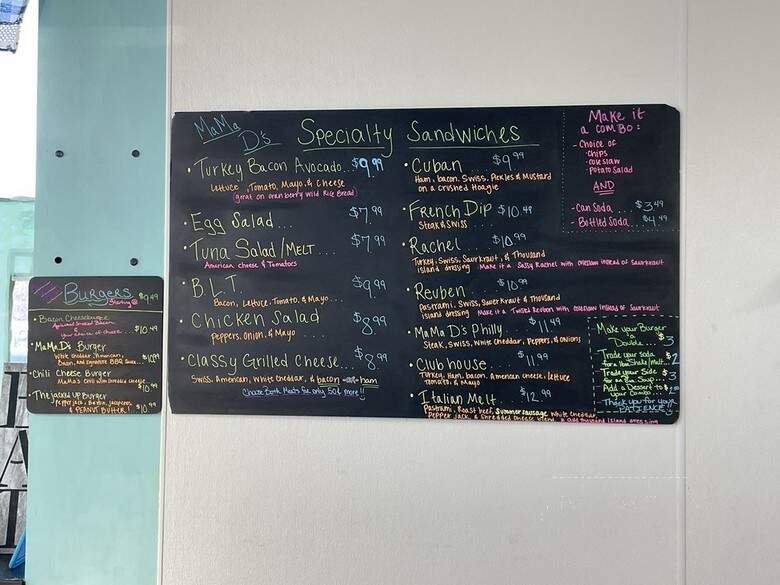 MaMa D's Specialty Sandwiches
• Turkey Bacon Avocado... $9.99
Lettuce, Tomato, Mayo, & Cheese
(great on cranberry wild Rice Bread)
• Egg Salad... $7.99
• Tuna Salad/MELT... $7.99
American Cheese & Tomatoes
• B.L.T. $9.99
Bacon, Lettuce, Tomato, & Mayo...
• Chicken Salad $8.99
Peppers, Onion, & Mayo
• Classy Grilled Cheese... $8.99
Swiss, American, White Cheddar, & bacon ham
Choose Both Meats for only 50¢ more!!
• Cuban $9.99
Ham, bacon, Swiss, Pickles & Mustard
on a crushed Hoagie
• French Dip $10.99
Steak & Swiss
• Rachel $10.99
Turkey, Swiss, Saurkraut, & Thousand
island dressing Make it a Sassy Rachel with coleslaw instead of Saurkraut
• Reuben $10.99
Pastrami, Swiss, Sauer Kraut & Thousand
island dressing Make it a Twisted Reuben with coleslaw instead of Saurkraut
• MaMa D's Philly $11.49
Steak, Swiss, White Cheddar, Peppers, & Onions
• Club house $11.99
Turkey, Ham, bacon, American cheese, lettuce
Tomato, & Mayo
• Italian Melt $12.99
Pastrami, Roast beef, Summer sausage, White cheddar,
Pepper jack, & shredded cheese blend & add thousand island dressing
Make it
a comBo:
- Choice of
• chips
• coleslaw
• potato salad
AND
- Can Soda $3.49
- Bottled Soda $4.49
Make your Burger a
Double $3
Trade your soda
for a $2
Trade your Side $3
for Soup...
Add a Dessert to
your Combo...
Thank you for your
PATIENCE!!
BURGERS Starting @ $9.49
• Bacon Cheeseburger
Applewood Smoked Bacon
&
your choice of cheese $10.49
• MaMa D's Burger
White cheddar, American,
Bacon, and signature BBQ Sauce... $10.99
• Chili Cheese Burger
MaMa's Chili with Shredded cheese
$10.99
• The Jacked Up Burger
Pepper jack, Bacon, Jalapenos
& PEANUT BUTTER! $10.99